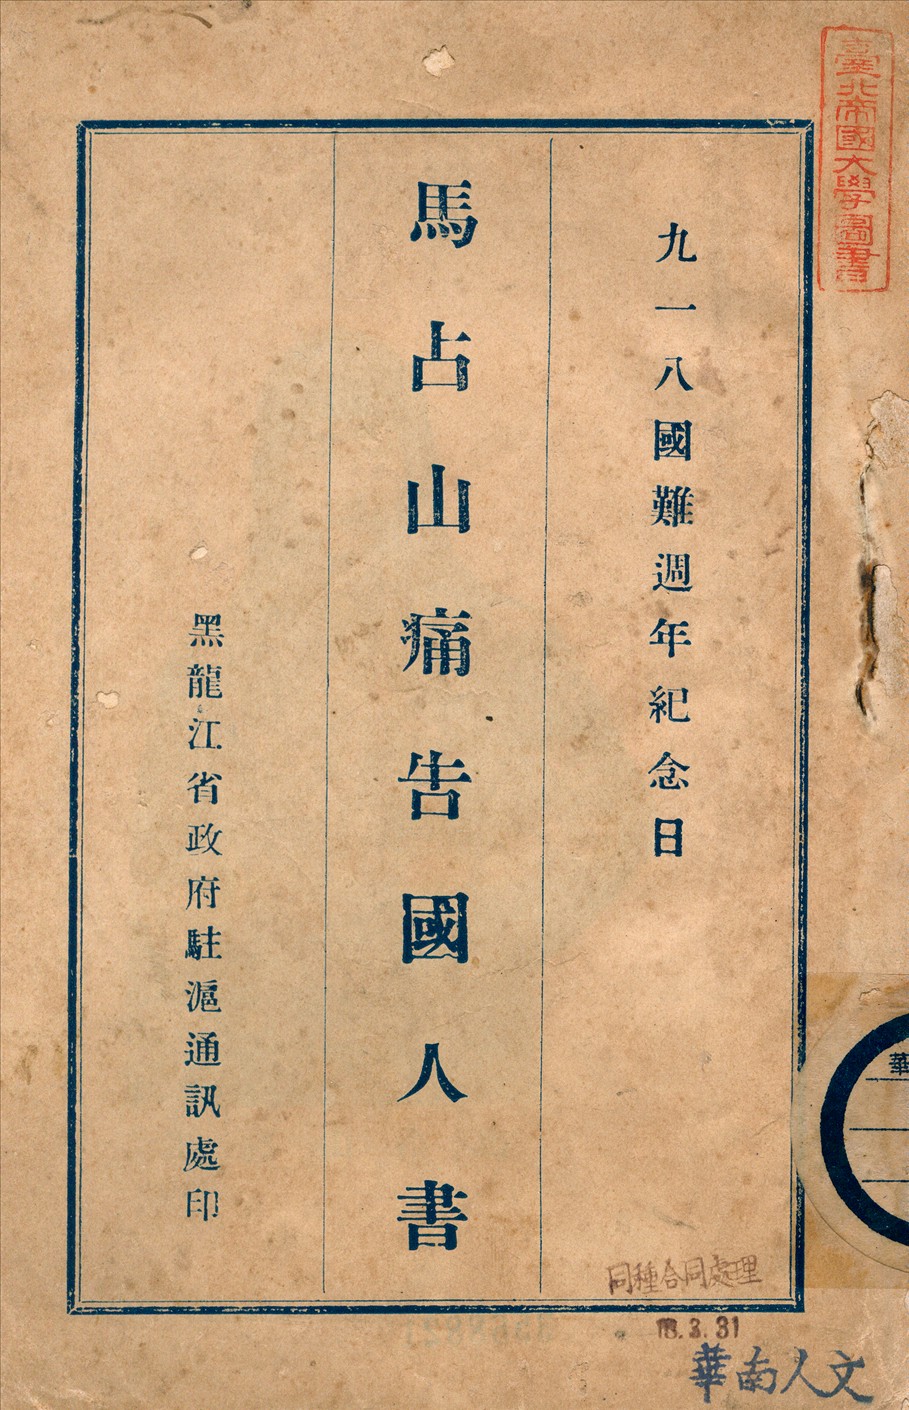 臺北帝國大學圖書
九一八國難週年紀念日
馬占山痛告國人書
黑龍江省政府駐滬通訊處印
華
同種合同處理
18.3.31
華南人文